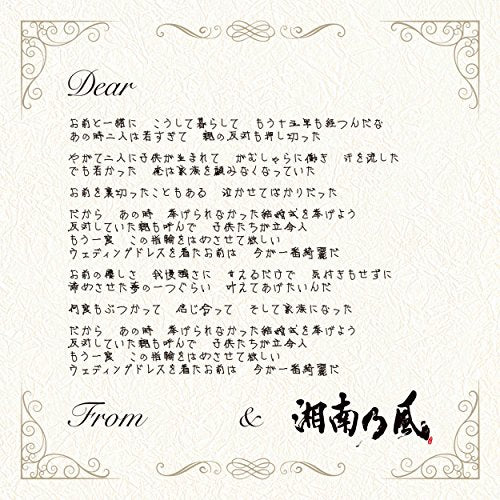 Dear
お前と一緒に こうして暮らして もう十五年も経つんだな
あの時二人は若すぎて 親の反対も押し切った
やがて二人に子供が生まれて がむしゃらに働き 汗を流した
でも若かった 俺は家族を顧みなくなっていた
お前を裏切ったこともある 泣かせてばかりだった
だから あの時 挙げられなかった結婚式を挙げよう
反対していた親も呼んで 子供たちが立会人
もう一度 この指輪をはめさせて欲しい
ウェディングドレスを着たお前は 今が一番綺麗だ
お前の優しさ 我慢強さに 甘えるだけで 気付きもせずに
諦めさせた夢の一つぐらい 叶えてあげたいんだ
何度もぶつかって 信じ合って そして家族になった
だから あの時 挙げられなかった結婚式を挙げよう
反対していた親も呼んで 子供たちが立会人
もう一度 この指輪をはめさせて欲しい
ウェディングドレスを着たお前は 今が一番綺麗だ
From & 湘南乃風